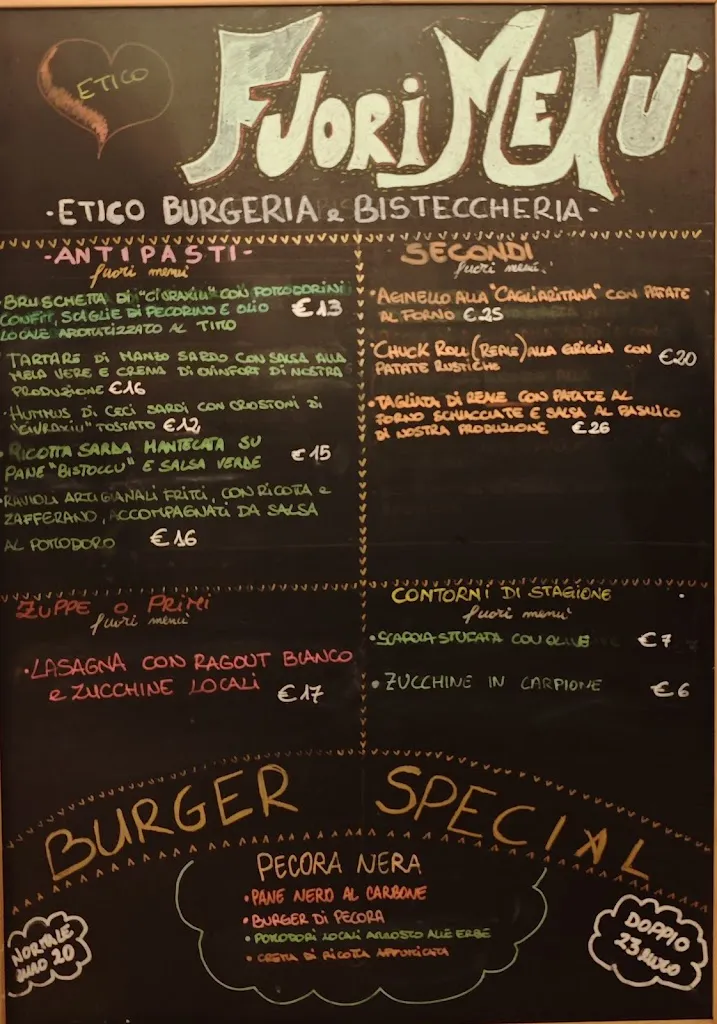 ETICO
FUORI MENU'
·ETICO BURGERIA e BISTECCHERIA-
-ANTIPASTI-
fuori menù
·BRUSCHETTA DI "CIVRAXIU" CON POMODORINI
CONFIT, SCAGLIE DI PECORINO E OLIO
LOCALE AROMATIZZATO AL TIMO
€13
TARTARE DI MANZO SARDO CON SALSA ALLA
MELA VERDE E CREMA DI QUINFORT DI NOSTRA
PRODUZIONE €16
·HUMMUS DI CECI SARDI CON CROSTONI DI
"CIVRAXIU" TOSTATO €12
·RICOTTA SARDA MANTECATA SU
PANE "BISTOCCU" E SALSA VERDE
€15
·RAVIOLI ARTIGIANALI FRITTI, CON RICOTTA e
ZAFFERANO, ACCOMPAGNATI DA SALSA
AL POMODORO €16
SECONDI
fuori menù
·AGNELLO ALLA "CAGLIARITANA" CON PATATE
AL FORNO €25
·CHUCK ROLL (REALE) ALLA GRIGLIA CON
PATATE RUSTICHE
€20
·TAGLIATA DI REALE CON PATATE AL
FORNO SCHIACCIATE E SALSA AL BASILICO
DI NOSTRA PRODUZIONE €26
ZUPPE O PRIMI
fuori menù
·LASAGNA CON RAGOUT BIANCO
e ZUCCHINE LOCALI €17
CONTORNI DI STAGIONE
fuori menù
·SCAROLA STUFATA CON OLIVE €7
·ZUCCHINE IN CARPIONE €6
BURGER SPECIAL
PECORA NERA
·PANE NERO AL CARBONE
·BURGER DI PECORA
·POMODORI LOCALI ARROSTO ALLE ERBE
·CREMA DI RICOTTA AFFUMICATA
NORMALE
euro 20
DOPPIO
23 euro